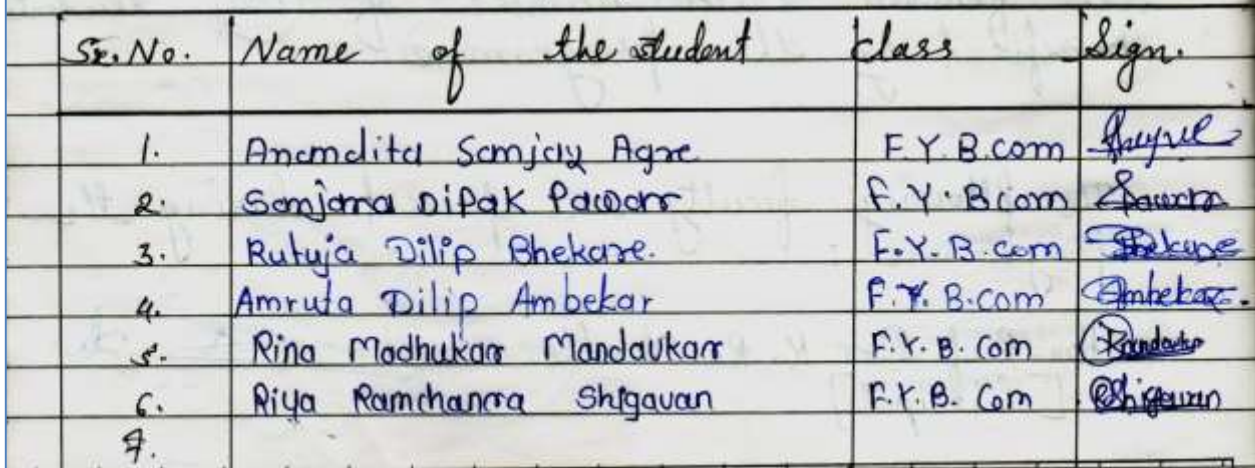 Sr. No. Name of the student class Sign.
1. Anamdita Samjay Agre F.Y.B.com
2. Samjana Dipak Pawarr F.Y.B.com Pawar
3. Rutuja Dilip Bhekare. F.Y.B.com Bhekare
4. Amruta Dilip Ambekar F.Y.B.com Ambekar.
5. Rina Madhukarr Mandavkarr F.Y.B.Com
6. Riya Ramchanrra Shigavan F.Y.B.Com Shigavan
7.